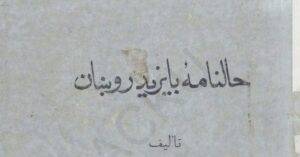 حالنامهٔ بایزید روښان
تالیف